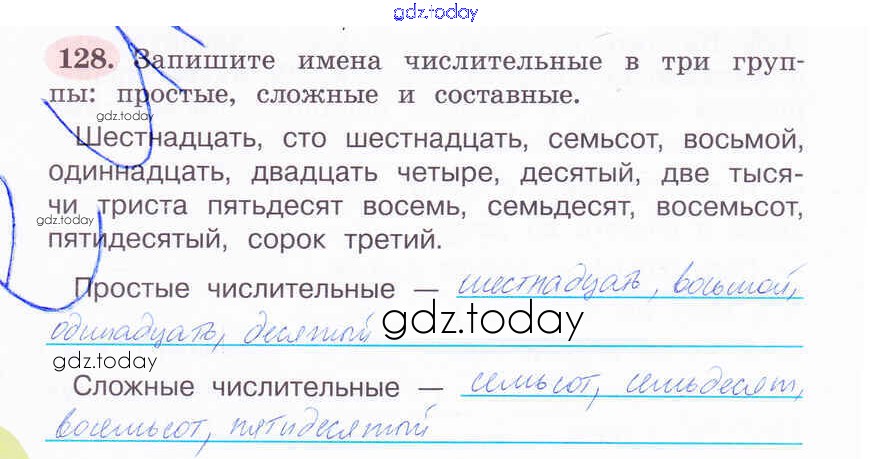 gdz.today
128. Запишите имена числительные в три груп-
пы: простые, сложные и составные.
gdz.today
Шестнадцать, сто шестнадцать, семьсот, восьмой,
одиннадцать, двадцать четыре, десятый, две тыся-
gdz.today
чи триста пятьдесят восемь, семьдесят, восемьсот,
пятидесятый, сорок третий.
Простые числительные — шестнадцать, восьмой,
одинадцать, десятый
gdz.today
gdz.today
Сложные числительные — семьсот, семьдесят,
восемьсот, пятидесятый